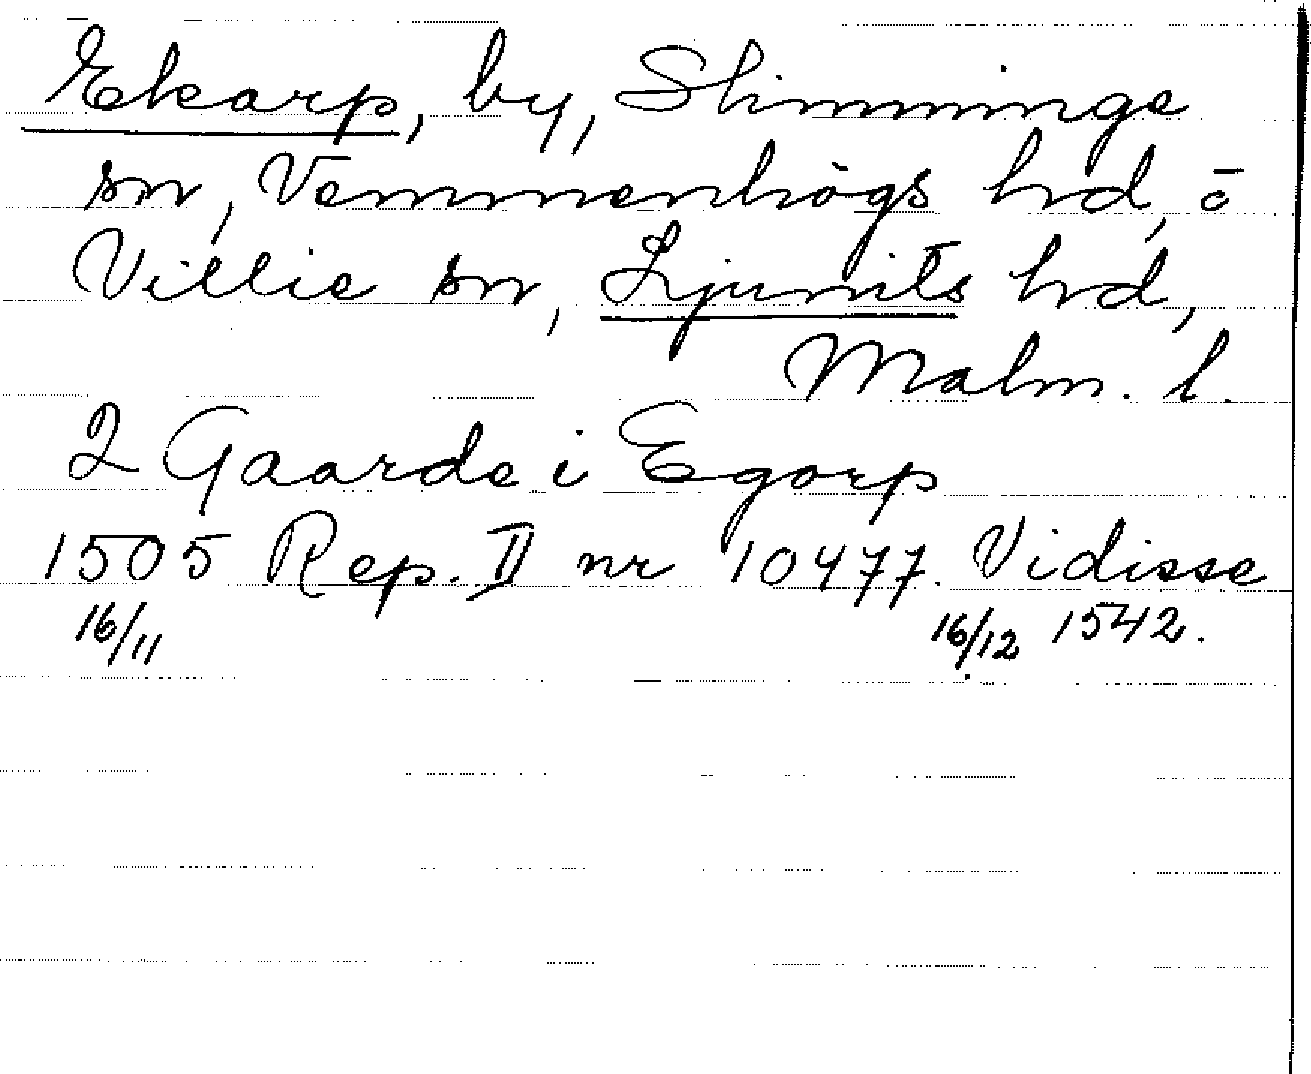 Ekarp, by, Slimminge
sn, Vemmenhögs hrd, o
Villie sn, Ljunits hrd,
Malm. l.
2 Gaarde i Egorp
1505 Rep. II nr 10477. Vidisse
16/11 16/12 1542.